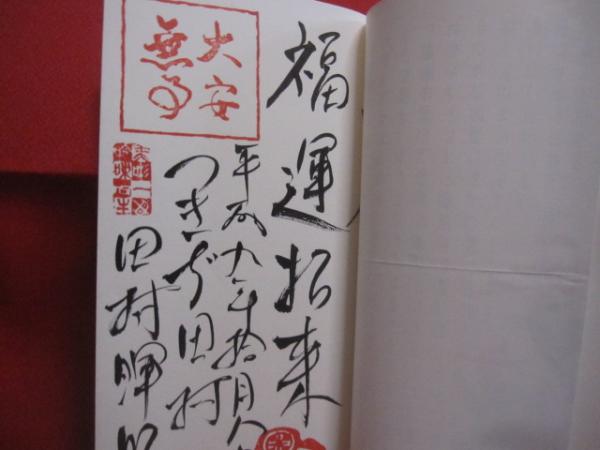 福運招来
平成九年拾月
つきぢ田村
田村暉昭
大安
無事